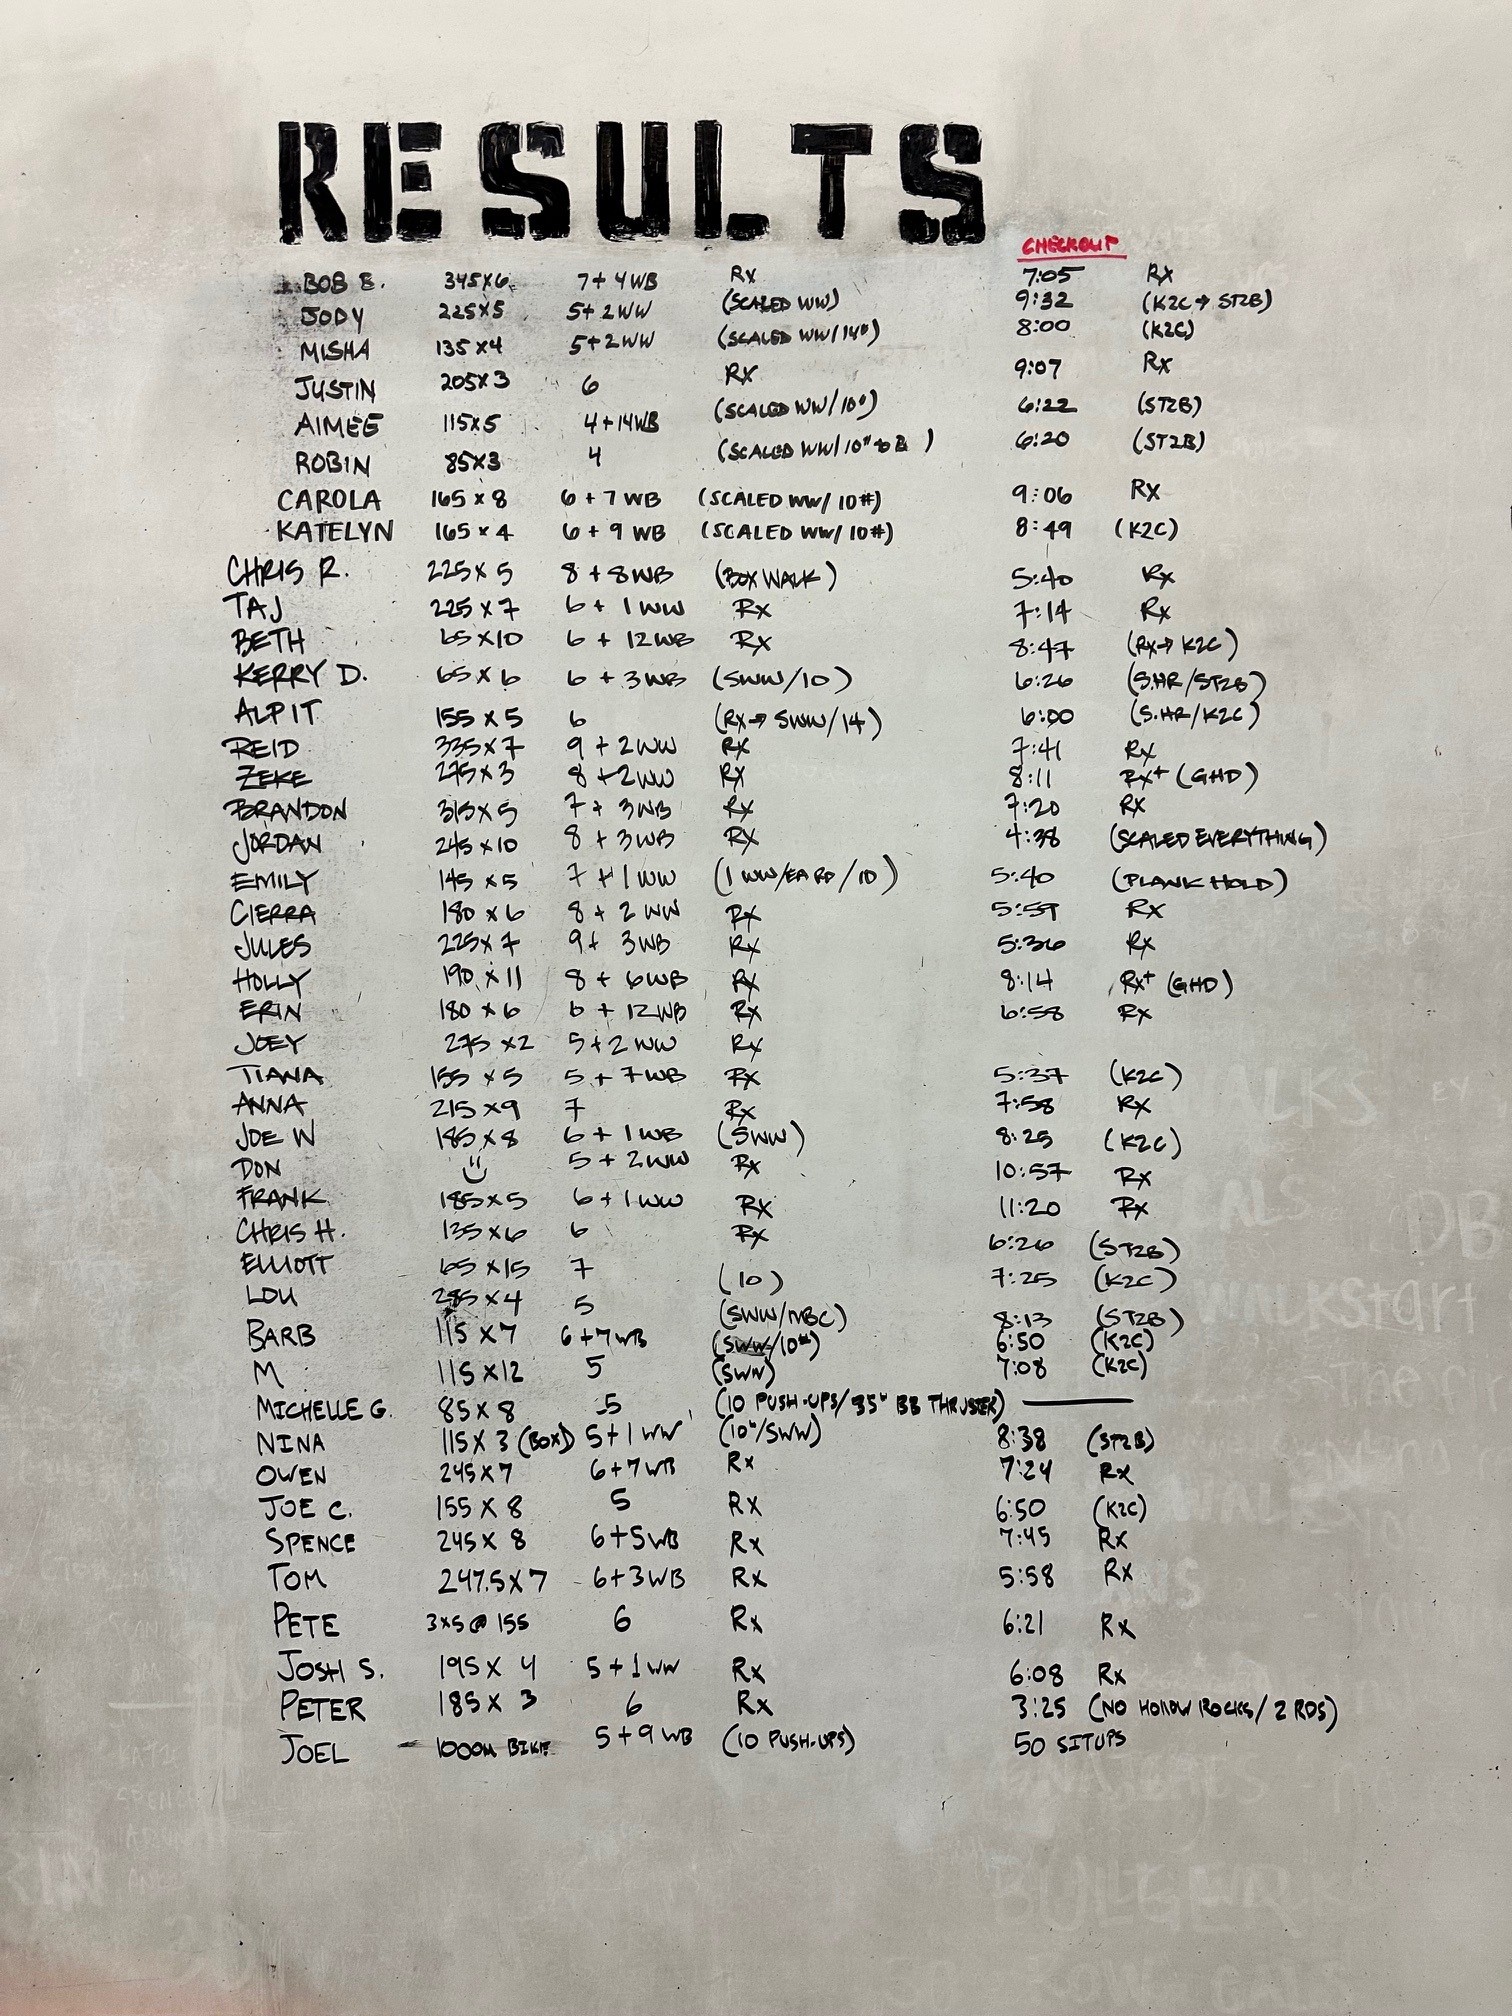 RESULTS
CHECKOUT
BOB E. 345x6 7+4WB Rx 7:05 Rx
JODY 225x5 5+2WW (SCALED WW) 9:32 (K2C→ST2B)
MISHA 135x4 5+2WW (SCALED WW/14#) 8:00 (K2C)
JUSTIN 205x3 6 Rx 9:07 Rx
AIMEE 115x5 4+14WB (SCALED WW/10#) 6:22 (ST2B)
ROBIN 85x3 4 (SCALED WW/10# ) 6:20 (ST2B)
CAROLA 165x8 6+7WB (SCALED WW/10#) 9:06 Rx
KATELYN 165x4 6+9WB (SCALED WW/10#) 8:49 (K2C)
CHRIS R. 225x5 8+8WB (BOX WALK) 5:40 Rx
TAJ 225x7 6+1WW Rx 7:14 Rx
BETH 65x10 6+12WB Rx 8:47 (Rx→K2C)
KERRY D. 65x6 6+3WB (SWW/10) 6:26 (S.HR/ST2B)
ALPIT 155x5 6 (Rx→SWW/14) 6:00 (S.HR/K2C)
REID 335x7 9+2WW Rx 7:41 Rx
ZEKE 275x3 8+2WW Rx 8:11 Rx+ (GHD)
BRANDON 315x5 7+3WB Rx 7:20 Rx
JORDAN 245x10 8+3WB Rx 4:38 (SCALED EVERYTHING)
EMILY 145x5 7+1WW (1WW/EA RD/10) 5:40 (PLANK HOLD)
CIERRA 180x6 8+2WW Rx 5:59 Rx
JULES 225x7 9+3WB Rx 5:36 Rx
HOLLY 190x11 8+6WB Rx 8:14 Rx+ (GHD)
ERIN 180x6 6+12WB Rx 6:58 Rx
JOEY 275x2 5+2WW Rx
TIANA 155x5 5+7WB Rx 5:37 (K2C)
ANNA 215x9 7 Rx 7:58 Rx
JOE W 185x8 6+1WB (SWW) 8:25 (K2C)
DON 5+2WW Rx 10:57 Rx
FRANK 185x5 6+1WW Rx 11:20 Rx
CHRIS H. 135x6 6 Rx 6:26 (ST2B)
ELLIOTT 65x15 7 (10) 7:25 (K2C)
LOU x4 5 (SWW/NBC) 8:13 (ST2B)
BARB 115x7 6+7WB (SWW/10#) 6:50 (K2C)
M 115x12 5 (SWW) 7:08 (K2C)
MICHELLE G. 85x8 5 (10 PUSH-UPS/35# BB THRUSTER)
NINA 115x3 (BOX) 5+1WW (10#/SWW) 8:38 (ST2B)
OWEN 245x7 6+7WB Rx 7:24 Rx
JOE C. 155x8 5 Rx 6:50 (K2C)
SPENCE 245x8 6+5WB Rx 7:45 Rx
TOM 247.5x7 6+3WB Rx 5:58 Rx
PETE 3x5@155 6 Rx 6:21 Rx
JOSH S. 195x4 5+1WW Rx 6:08 Rx
PETER 185x3 6 Rx 3:25 (NO HOLLOW ROCKS/2 RDS)
JOEL 1000M BIKE 5+9WB (10 PUSH-UPS) 50 SITUPS